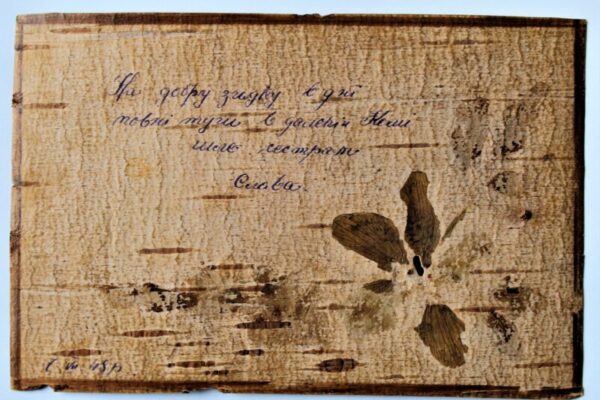 На добру згадку в дні
повні туги в далекій Комі
шлю сестрам
Слава.